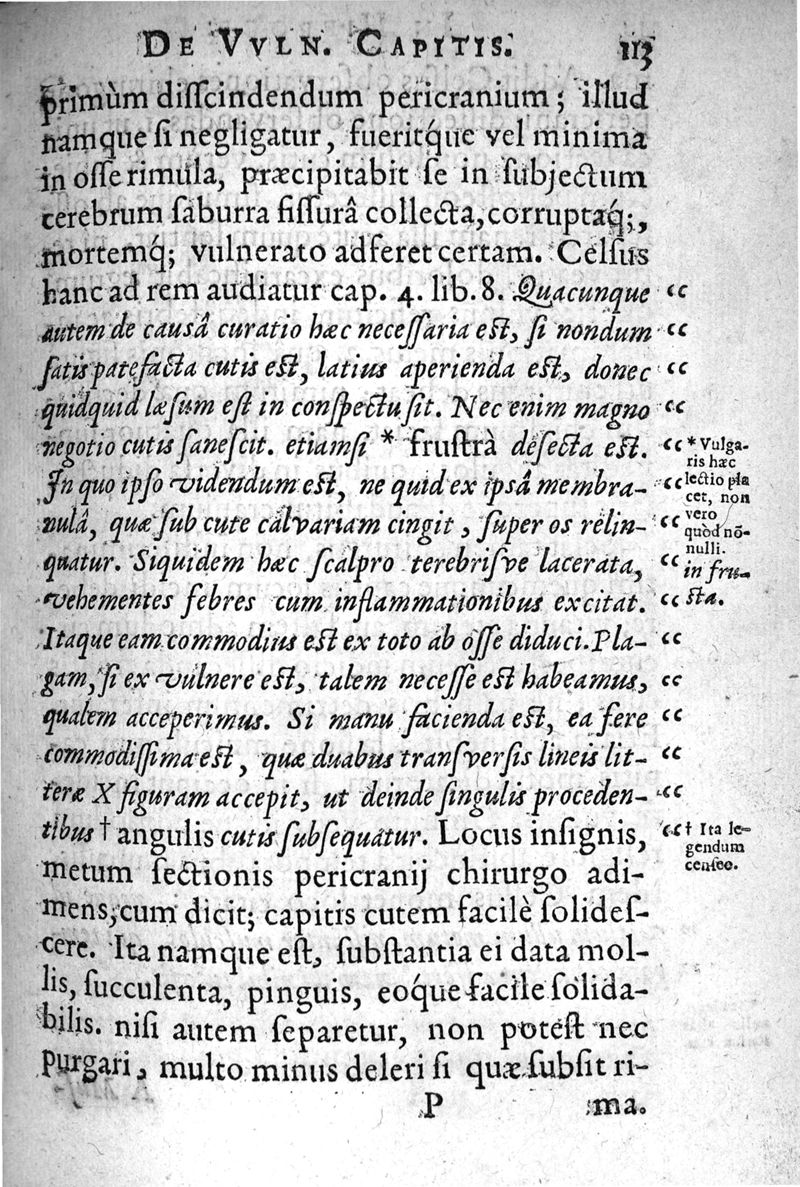 DE VVLN. CAPITIS. 113
primùm disſcindendum pericranium; illud
namque ſi negligatur, fueritq́ue vel minima
in oſſe rimula, præcipitabit ſe in ſubjectum
cerebrum ſaburra fiſſurâ collecta, corruptaq́;,
mortemq́; vulnerato adferet certam. Celſus
hanc ad rem audiatur cap. 4. lib. 8. Quacunque “
autem de causâ curatio hæc neceſſaria eſt, ſi nondum “
ſatis patefacta cutis eſt, latius aperienda eſt, donec “
quidquid læſum eſt in conſpectu ſit. Nec enim magno “
negotio cutis ſaneſcit. etiamſi * fruſtrà deſecta eſt. “
In quo ipſo videndum eſt, ne quid ex ipsâ membra- “
nulâ, quæ ſub cute calvariam cingit, ſuper os relin- “
quatur. Siquidem hæc ſcalpro terebriſve lacerata, “
vehementes febres cum inflammationibus excitat. “
Itaque eam commodius eſt ex toto ab oſſe diduci. Pla- “
gam, ſi ex vulnere eſt, talem neceſſe eſt habeamus, “
qualem acceperimus. Si manu facienda eſt, ea fere “
commodiſſima eſt, quæ duabus tranſverſis lineis lit- “
teræ X figuram accepit, ut deinde ſingulis proceden- “
tibus † angulis cutis ſubſequatur. Locus inſignis, “
metum ſectionis pericranij chirurgo adi-
mens, cum dicit; capitis cutem facilè ſolideſ-
cere. Ita namque eſt, ſubſtantia ei data mol-
lis, ſucculenta, pinguis, eoque facile ſolida-
bilis. niſi autem ſeparetur, non poteſt nec
purgari, multo minus deleri ſi quæ ſubſit ri-
P ma.
* Vulga-
ris hæc
lectio pla
cet, non
vero
quòd nō-
nulli.
in fru-
ſta.
† Ita le-
gendum
cenſeo.